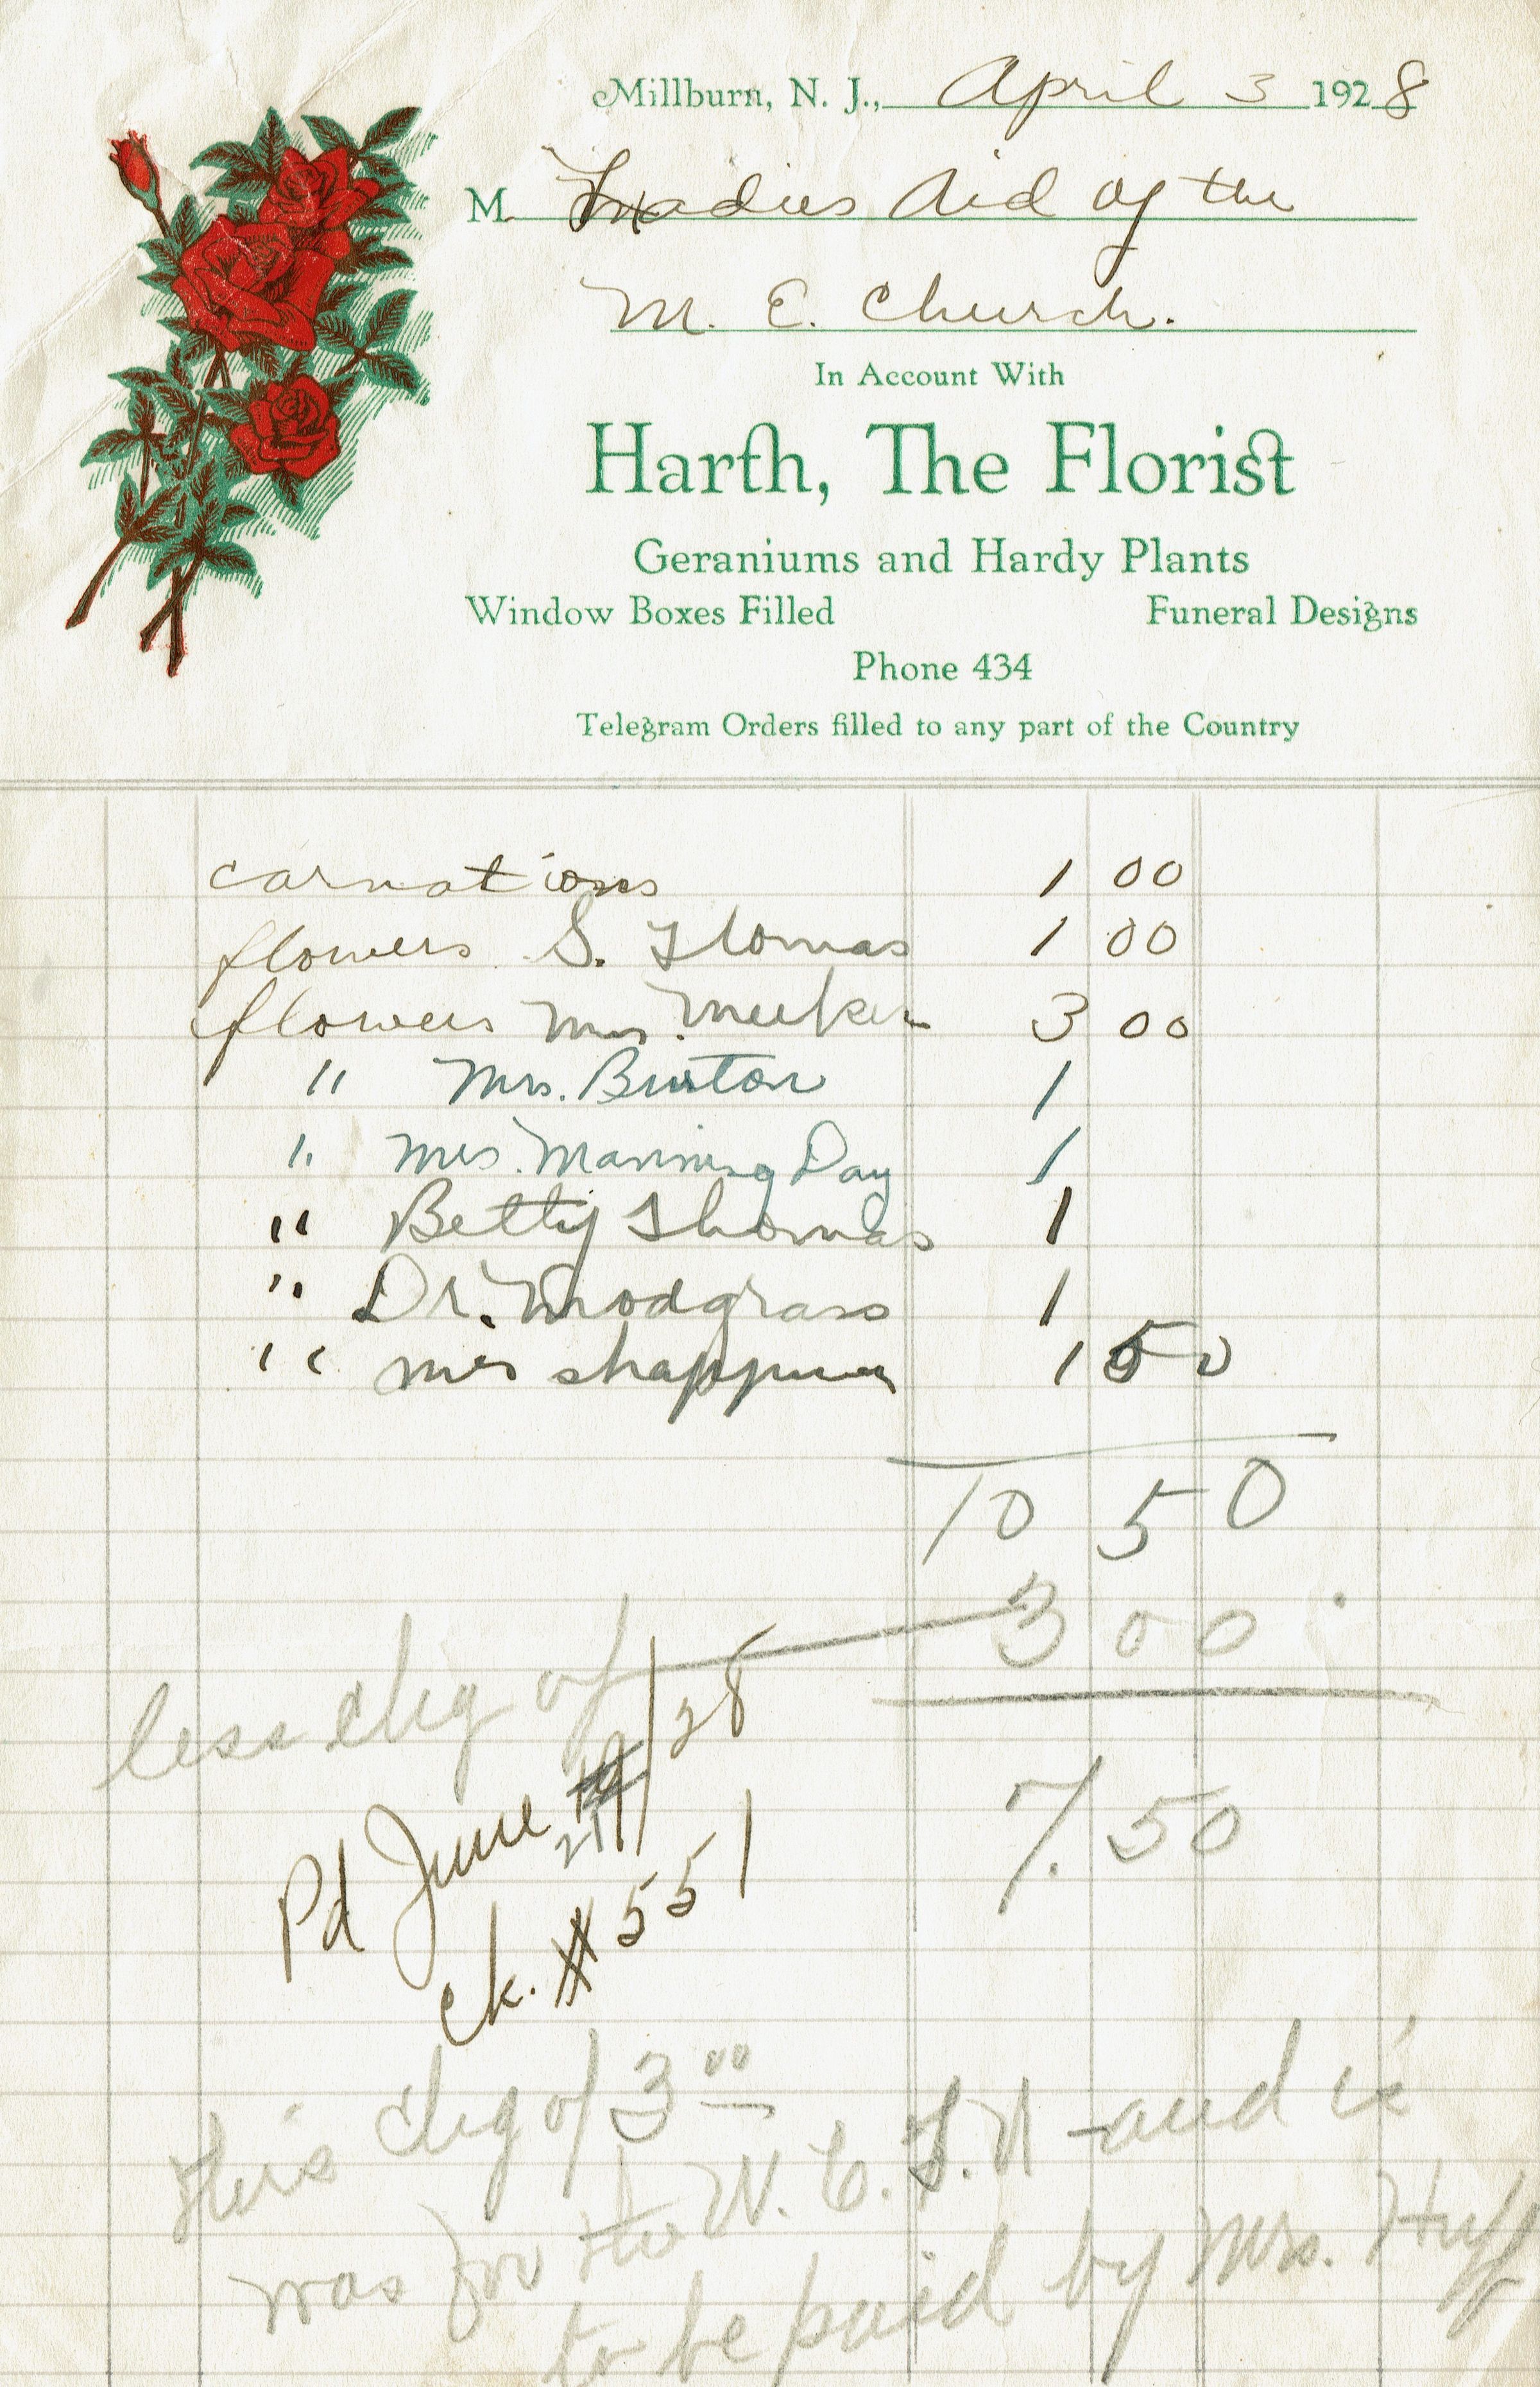 Millburn, N. J., April 3 1928
M. Ladies Aid of the
M. E. Church.
In Account With
Harth, The Florist
Geraniums and Hardy Plants
Window Boxes Filled Funeral Designs
Phone 434
Telegram Orders filled to any part of the Country
carnations 1 00
flowers S. Thomas 1 00
flowers Mrs. Meeker 3 00
" Mrs. Burton 1
" Mrs. Manning Day 1
" Betty Thomas 1
" Dr. Snodgrass 1
" Mrs 1 50
10 50
less chg of 3 00
7.50
Pd June 21/28
ck. #551
this chg of 3 00
was for the W. C. T. U and is
to be paid by Mrs. Huff